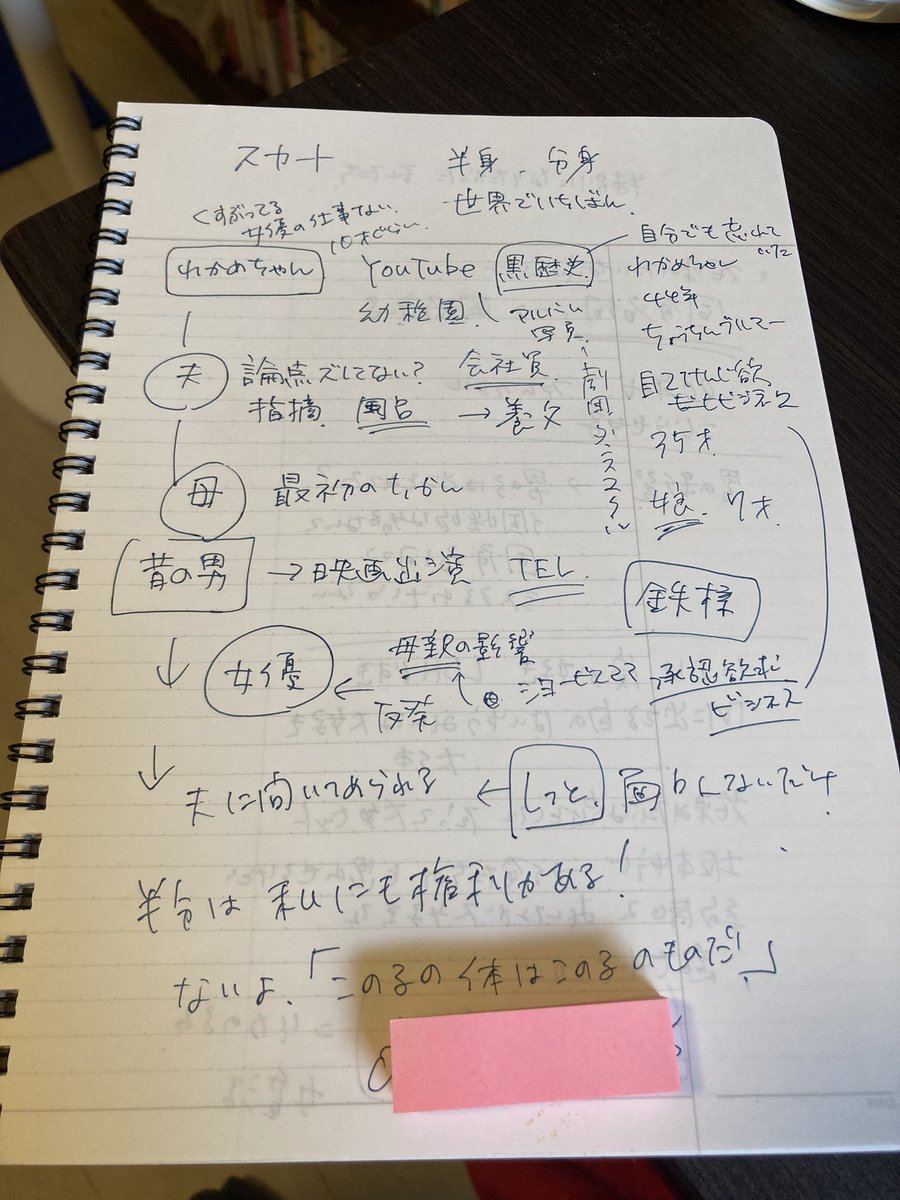 スカート 半身、分身
世界でいちばん、
くすぶってる
女優の仕事ない、
10才ぐらい
わかめちゃん YouTube 黒歴史 自分でも忘れていた
幼稚園! アルバム写真 わかめちゃん
44年
ちょうちんブルマー
夫 論点ズレてない? 会社員 劇団
指摘 風呂 → 養父
35才
母 最初のちかん 娘、7才、
昔の男 → 映画出演 TEL
鉄棒
女優 ← 母親の影響
承認欲求
ビジネス
夫に向いてめられる ← しっと、
半分は私にも権利がある!
ないよ、「この子の体はこの子のものだ!」